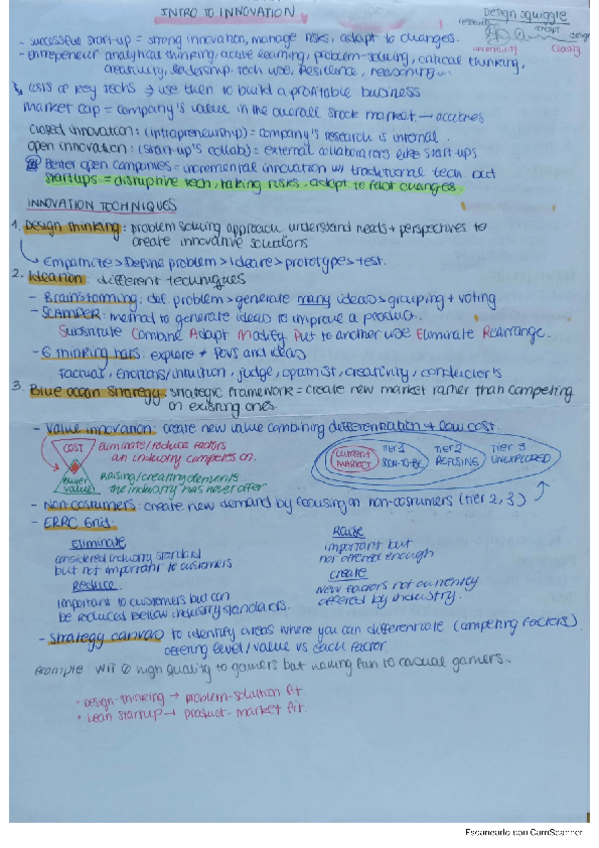 INTRO TO INNOVATION
Design squiggle
research concept design
uncertainty clarity
- successful start-up = strong innovation, manage risks, adapt to changes.
- Entrepeneur analytical thinking, active learning, problem-solving, critical thinking,
creativity, leadership, tech use, Resilience, reasoning...
↳ lists of key techs → use them to build a profitable business
market cap = company's value in the overall stock market → acciones
closed innovation: (intrapreneurship) = company's research is internal.
open innovation: (start-up's collab) = external collaborators like start-ups
Better open companies = incremental innovation w/ traditional tech but
startups = disruptive tech, taking risks, adapt to fast changes.
INNOVATION TECHNIQUES
1. Design thinking: problem solving approach understand needs + perspectives to
create innovative solutions
↳ Empathize > Define problem > Ideate > prototypes > test.
2. Ideation: different techniques
- Brainstorming: def problem > generate many ideas > grouping + voting.
- SCAMPER: method to generate ideas to improve a product.
Substitute Combine Adapt Modify Put to another use Eliminate Rearrange.
- 6 thinking hats: explore ≠ POVs and ideas
Factual, emotions/intuition, judge, optimist, creativity, conductor
3. Blue ocean strategy: strategic framework = create new market rather than competing
on existing ones.
- Value innovation: create new value combining differentiation + low cost.
COST eliminate/reduce factors
an industry competes on.
buyer value Raising/creating elements
the industry has never offer
current MARKET
TIER 1 SOON-TO-BE
TIER 2 REFUSING
TIER 3 UNEXPLORED
- Non-costumers: create new demand by focusing on non-costumers (tier 2, 3)
- ERRC Grid:
Eliminate
considered industry standard
but not important to customers
Reduce
important to customers but can
be reduced bellow industry standards.
Raise
important but
not offered enough
create
New factors not currently
offered by industry.
- Strategy canvas to identify areas where you can differentiate (competing factors).
offering level/value vs each factor
Example: Wii high quality to gamers but having fun to casual gamers.
• Design-thinking → problem-solution fit
• Lean startup → product-market fit.
Escaneado con CamScanner